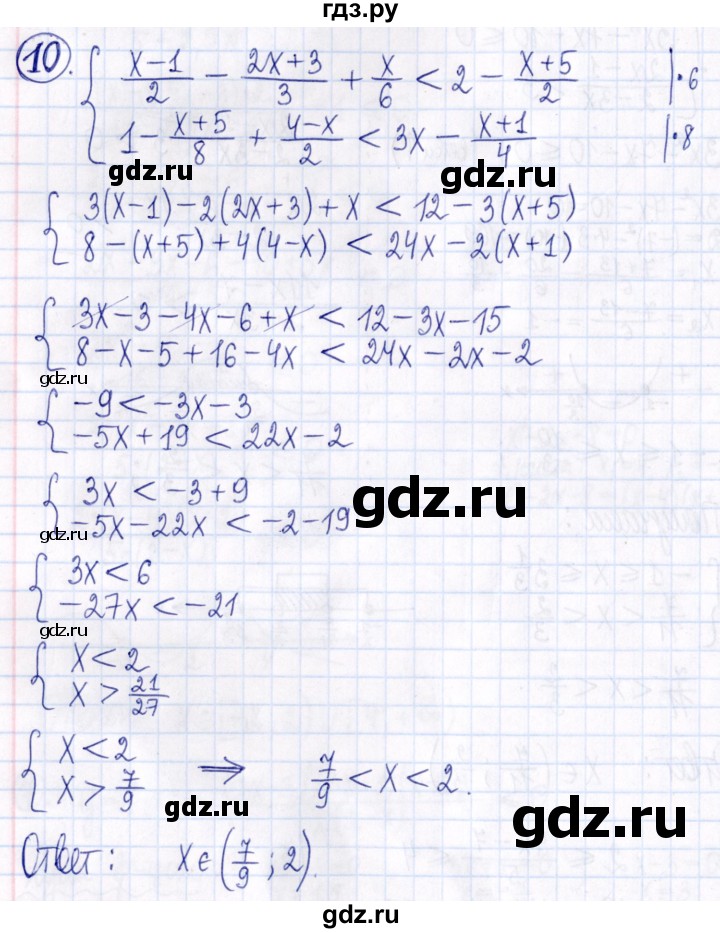 гдз.ру
10. { (x-1)/2 - (2x+3)/3 + x/6 < 2 - (x+5)/2 |·6
1 - (x+5)/8 + (4-x)/2 < 3x - (x+1)/4 |·8
gdz.ru gdz.ru
{ 3(x-1)-2(2x+3)+x < 12-3(x+5)
8-(x+5)+4(4-x) < 24x-2(x+1)
gdz.ru
{ 3x-3-4x-6+x < 12-3x-15
8-x-5+16-4x < 24x-2x-2
gdz.ru
{ -9<-3x-3
-5x+19 < 22x-2
gdz.ru
{ 3x < -3+9
-5x-22x < -2-19
gdz.ru
gdz.ru
{ 3x<6
-27x<-21
gdz.ru
{ x<2
x > 21/27
{ x<2
x > 7/9 ⇒ 7/9 < x < 2.
gdz.ru gdz.ru
Ответ: x∈(7/9; 2).
gdz.ru